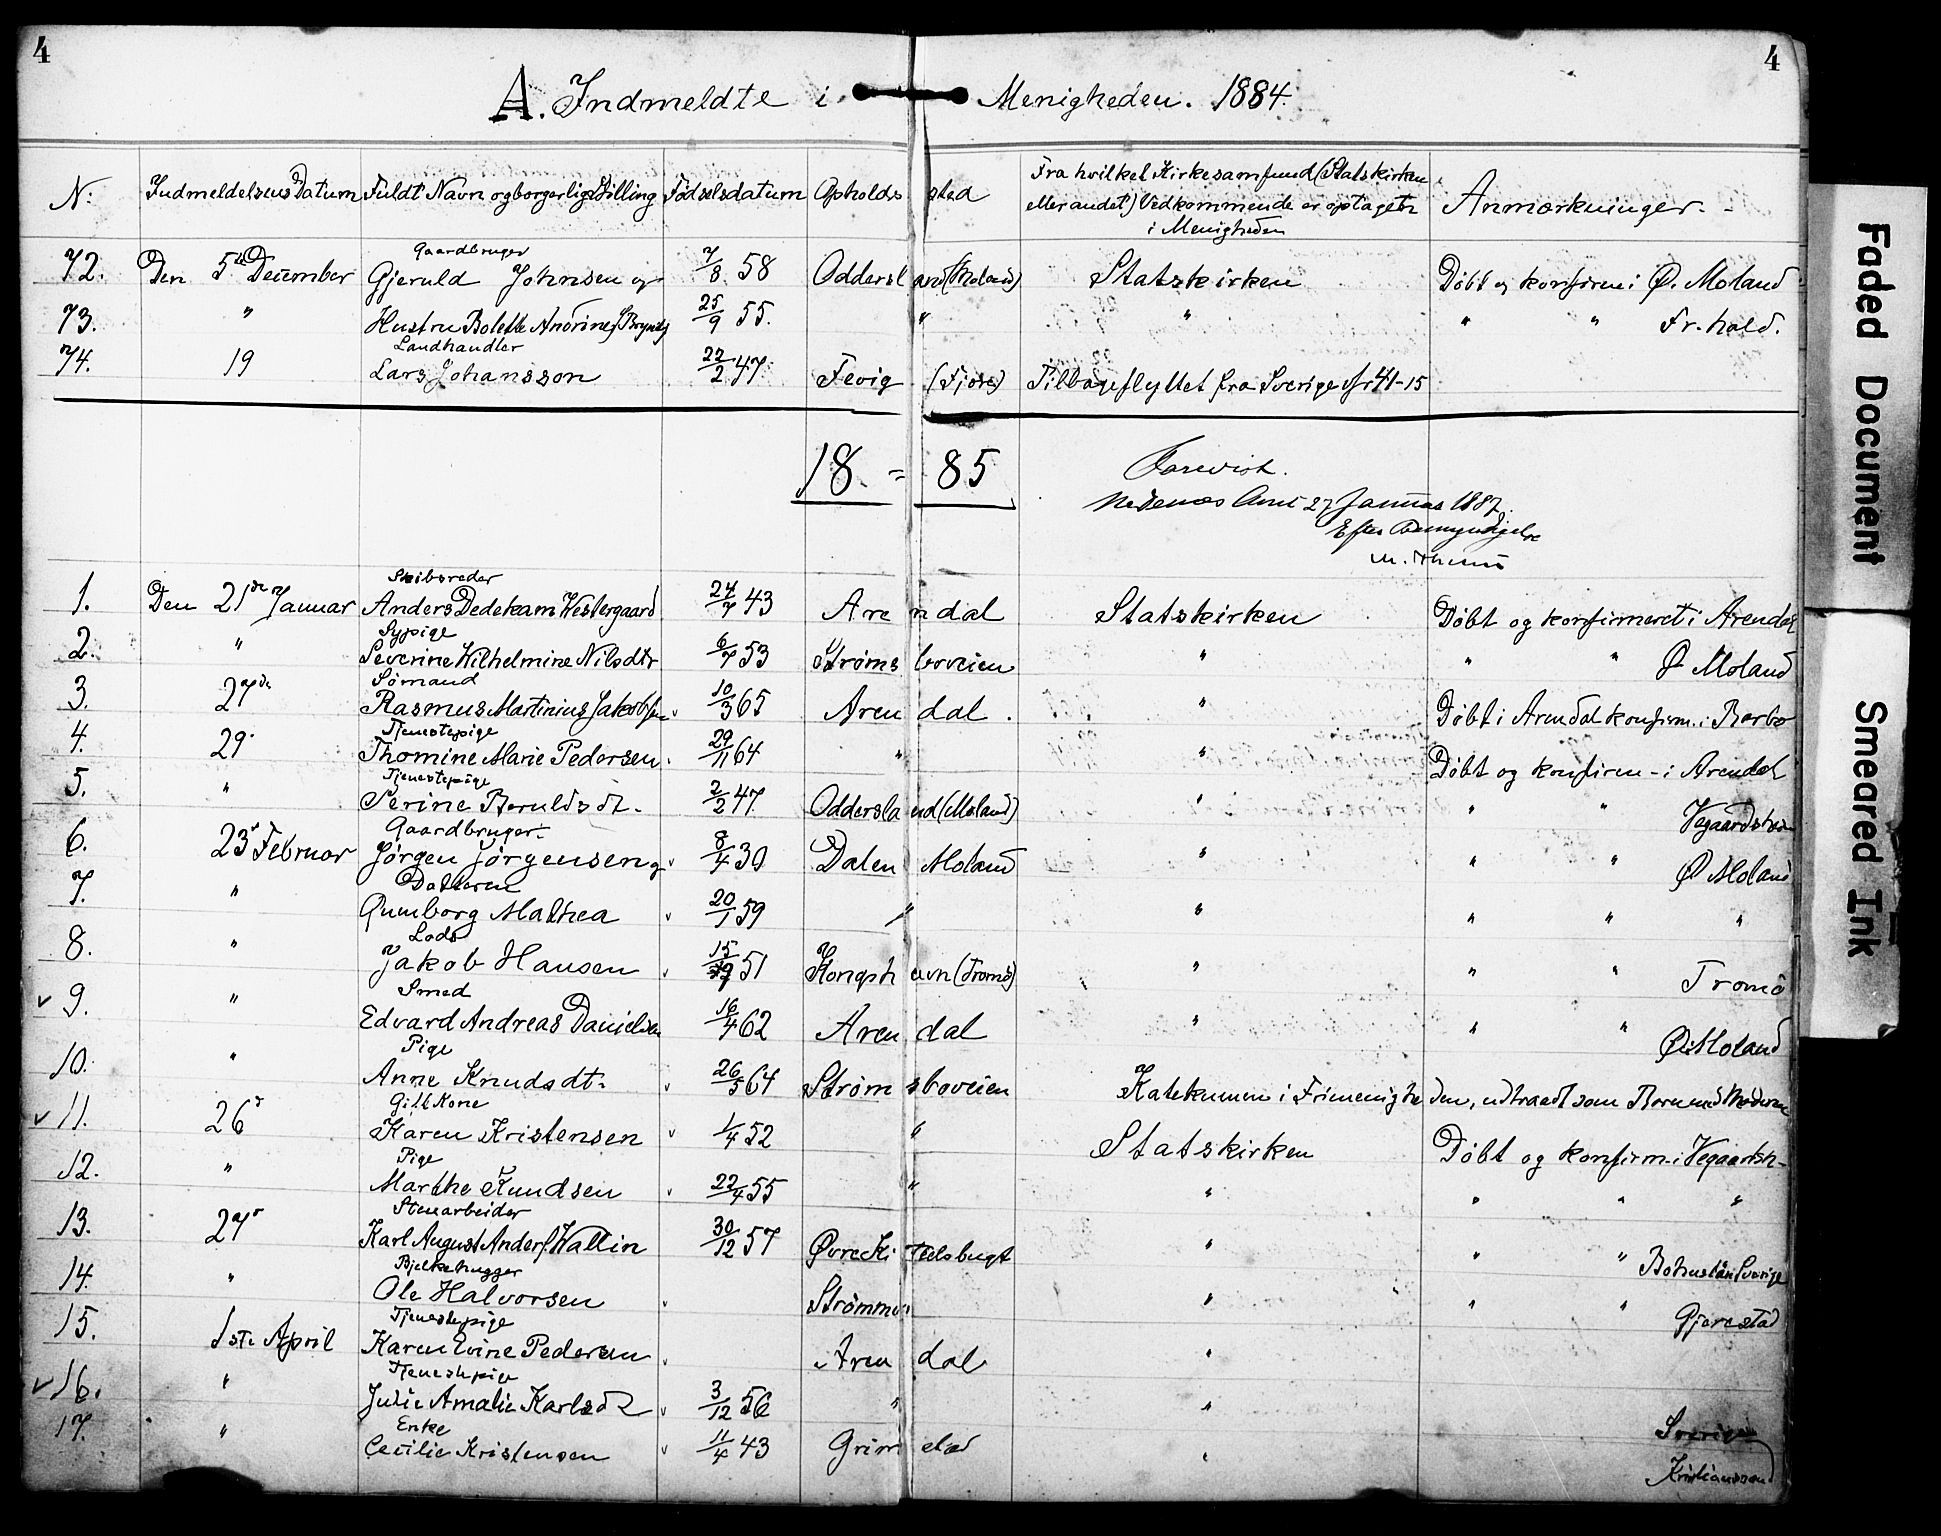 4 4
A. Indmeldte i Menigheden. 1884.
N: Indmeldelsens Datum Fuldt Navn og borgerlige Stilling Fødselsdatum Opholdssted Fra hvilket Kirkesamfund (Statskirken eller andet) Vedkommende er optaget i Menigheden Anmærkninger.
Gaardbruger
72. Den 5te December Gjeruld Johnsen og 7/8 58 Oddersland (Moland) Statskirken Døbt og konfirm i Ø. Moland
73. " Hustru Bolette Andrine 25/9 55. " " " " Fr.hold.
Landhandler
74. 19 Lars Johansson 22/2 47 Fevig (Fjære) Tilbageflyttet fra Sverige Nr 41-15
18 = 85
Forevist.
Nedenæs Amt 27 Januar 1887.
Efter Bemyndigelse
Skibsreder
1. Den 21de Januar Anders Dedekam Westergaard 24/7 43 Arendal Statskirken Døbt og konfirmeret i Arendal
Sypige
2. " Severine Wilhelmine Nilsdtr 6/7 53 Strømsboveien " " " Ø Moland
Sømand
3. 27de Rasmus Martinius Jakobsen 10/3 65 Arendal. " Døbt i Arendal konfirm. i Barbo
Tjenestepige
4. 29. Thomine Marie Pedersen. 29/11 64 " " Døbt og konfirm - i Arendal
Tjenestepige
5. " Serine Beruldsdt. 2/2 47. Oddersland (Moland) " " " Vegaardshei
Gaardbruger
6. 23d Februar Jørgen Jørgensen og v 8/4 30 Dalen Moland " " " Ø Moland
Datteren
7. " Gunborg Mathea v 20/1 59 " " " " "
Lods
8. " Jakob Hansen v 15/9 51 Kongshavn (Tromø) " " " Tromø
Smed
v 9. " Edvard Andreas Danielsen 16/4 62 Arendal " " " Ø. Moland
Pige
10. " Anne Knudsdt. v 26/5 64 Strømsboveien Katekumen i Frimenigheden, udtraadt som Barn med Moderen
Gift Kone
v 11. 26d Karen Kristensen v 1/4 52 " Statskirken Døbt og konfirm - i Vegaardsh-
Pige
12. " Marthe Knudsen v 22/4 55 " " " " "
Stenarbeider
13. 27d Karl August Anders. Wallin 30/12 57 Øvre Kittelsbugt " " " Bohuslän Sverige
Bjelkehugger
14. " Ole Halvorsen v Strømmen " " " Gjerestad
Tjenestepige
15. 1ste April Karen Evine Pedersen v Arendal "
Tjenestepige
v 16. " Julie Amalie Karlsdt v 3/12 56 " " Sverige
Enke
17. " Cecilie Kristensen v 11/4 43 Grimstad " Kristianssand
Faded Document
Smeared Ink